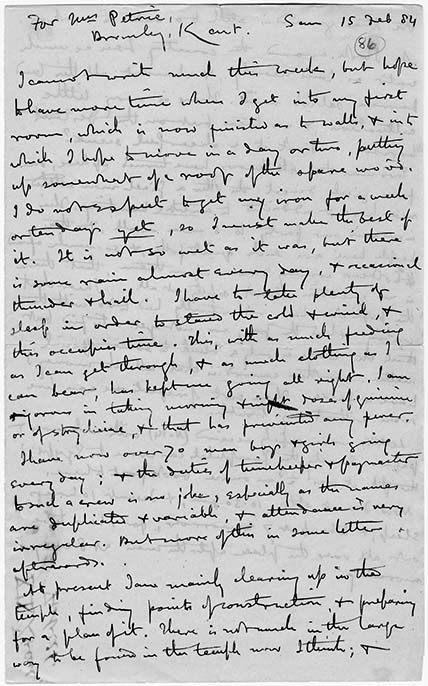 For Mrs Petrie,
Bromley, Kent.
San 15 Feb 84
86
I cannot write much this week, but hope
to have more time when I get into my first
room, which is now finished as to walls, & into
which I hope to move in a day or two, putting
up somewhat of a roof of the spare wood.
I do not expect to get my iron for a week
or ten days yet, so I must make the best of
it. It is not so wet as it was, but there
is some rain almost every day, & occasional
thunder & hail. I have to take plenty of
sleep in order to stand the cold & wind, &
this occupies time. This, with as much feeding
as I can get through, & as much clothing as I
can bear, has kept me going all right. I am
rigorous in taking morning & night dose of quinine
or of strychnine, & that has prevented any fever.
I have now over 70 men boys & girls going
every day; & the duties of timekeeper & paymaster
to such a crew is no joke, especially as the names
are duplicate & variable, & attendance is very
irregular. But more of this in some letter
afterwards.
At present I am mainly clearing up in the
temple, finding points of construction, & preparing
for a plan of it. There is not much in the large
way to be found in the temple now I think; &